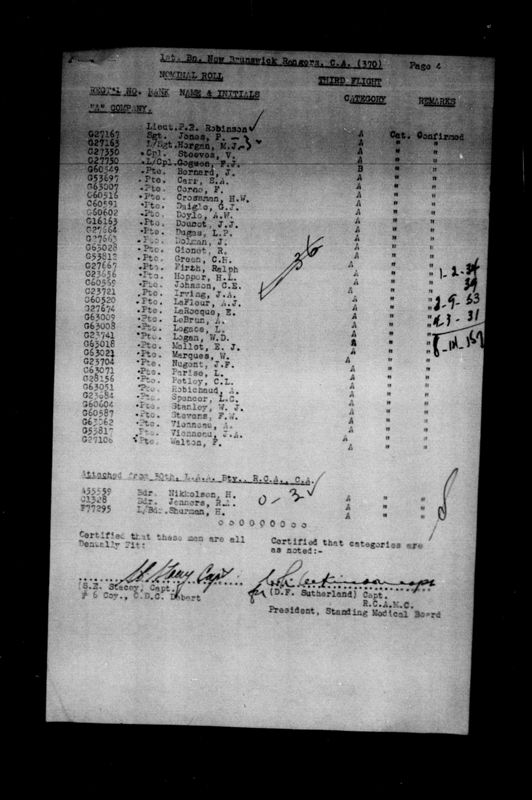 1st. Bn. New Brunswick Rangers, C.A. (370) Page 4
NOMINAL ROLL THIRD FLIGHT
REGT'L NO. RANK NAME & INITIALS CATEGORY REMARKS
"A" COMPANY.
Lieut. P.R. Robinson
G27167 Sgt. Jones, P. A Cat. Confirmed
G27165 L/Sgt. Horgan, M.J. - 3 - A " "
G27350 Cpl. Steeves, V. A " "
G27750 L/Cpl. Goguen, F.J. A " "
G60549 Pte. Bernard, J. B " "
G53697 Pte. Carr, S.A. A " "
G63007 Pte. Corno, F. A " "
G60516 Pte. Crossman, H.W. A " "
G60591 Pte. Daigle, G.J. A " "
G60602 Pte. Doyle, A.W. A " "
G16163 Pte. Doucet, J.J. A " "
G27664 Pte. Dugas, L.P. A " "
G27663 Pte. Dolman, J. A " "
G63028 Pte. Gionet, R. A " "
G53812 Pte. Green, C.H. A " "
G27667 Pte. Firth, Ralph A " "
G23656 Pte. Hopper, H.L. A " " 1-2-34
G60569 Pte. Johnson, C.E. A " " 39
G23721 Pte. Irving, J.A. A " "
G60520 Pte. LaFleur, A.J. A " " 2-9-53
G27674 Pte. LaRocque, E. A " "
G63009 Pte. LeBrun, A. A " " 23-31
G63008 Pte. Legace, L. A " "
G23741 Pte. Logan, W.D. A " "
G63018 Pte. Mallet, E. J. A " "
G63021 Pte. Marques, W. A " "
G23704 Pte. Nugent, J.F. A " "
G63071 Pte. Parise, L. A " "
G28156 Pte. Petley, C.L. A " "
G63051 Pte. Robichaud, A. A " "
G23684 Pte. Spencer, L.C. A " "
G60604 Pte. Stanley, W. J. A " "
G60587 Pte. Stevens, F.W. A " "
G63062 Pte. Vienneau, A. A " "
G53817 Pte. Vienneau, J.A. A " "
G27106 Pte. Walton, F. A " "
36
Attached from 50th. L.A.A. Bty., R.C.A., C.A.
A55559 Bdr. Nikkolson, H. A " "
C1328 Bdr. Jenners, R.A. 0 - 3 A " "
F77295 L/Bdr. Shurman, H. A " "
o o o o o o o o o
Certified that these men are all Certified that categories are
Dentally Fit: as noted:-
(S.E. Stacey) Capt. for (D.F. Sutherland) Capt.
# 6 Coy., C.D.C. Debert R.C.A.M.C.
President, Standing Medical Board